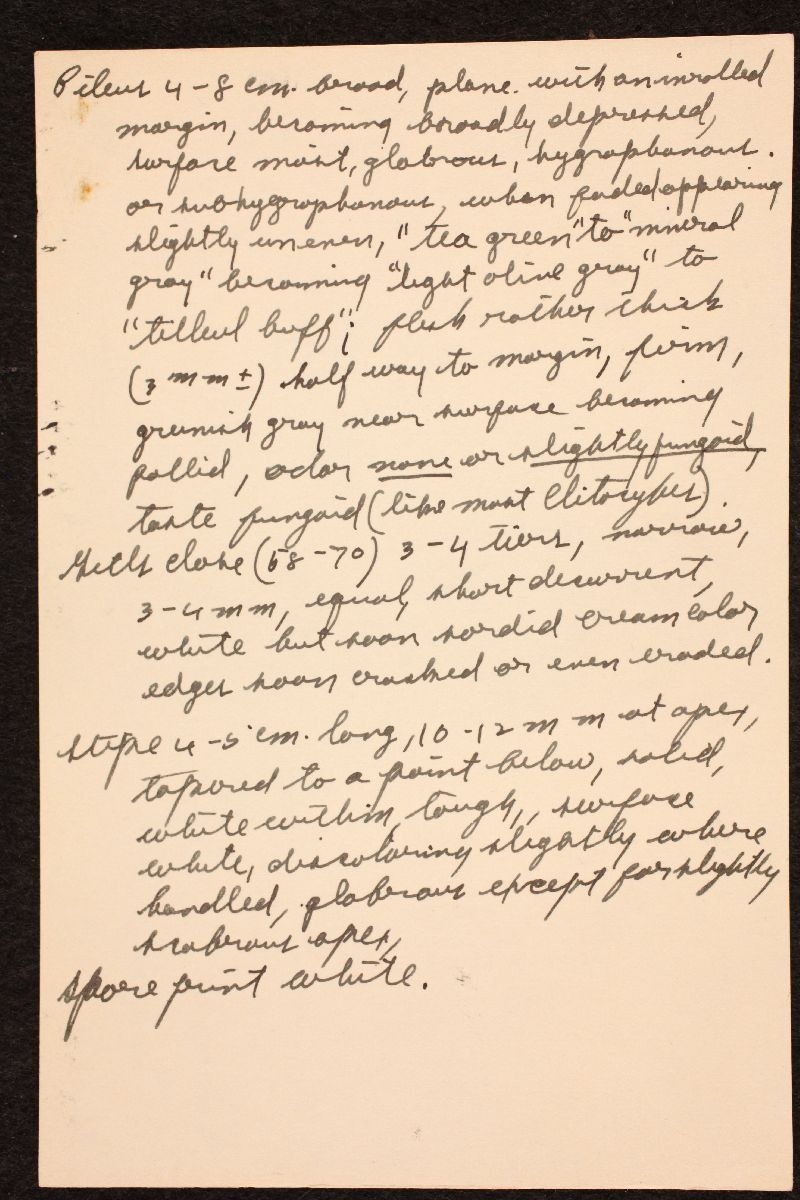 Pileus 4-8 cm. broad, plane. with an inrolled
margin, becoming broadly depressed,
surface moist, glabrous, hygrophanous.
or subhygrophanous, when faded appearing
slightly uneven, "tea green" to "mineral
gray" becoming "light olive gray" to
"tilleul buff"; flesh rather thick
(3 mm ±) half way to margin, firm,
greenish gray near surface becoming
pallid, odor none or slightly fungoid,
taste fungoid (like most Clitocybes).
Gills close (58-70) 3-4 tiers, narrow,
3-4 mm, equal, short decurrent,
white but soon sordid cream color
edges soon crushed or even eroded.
stipe 4-5 cm. long, 10-12 mm at apex,
tapered to a point below, solid,
white within, tough, surface
white, discoloring slightly where
handled, glabrous except for slightly
scabrous apex,
spore print white.